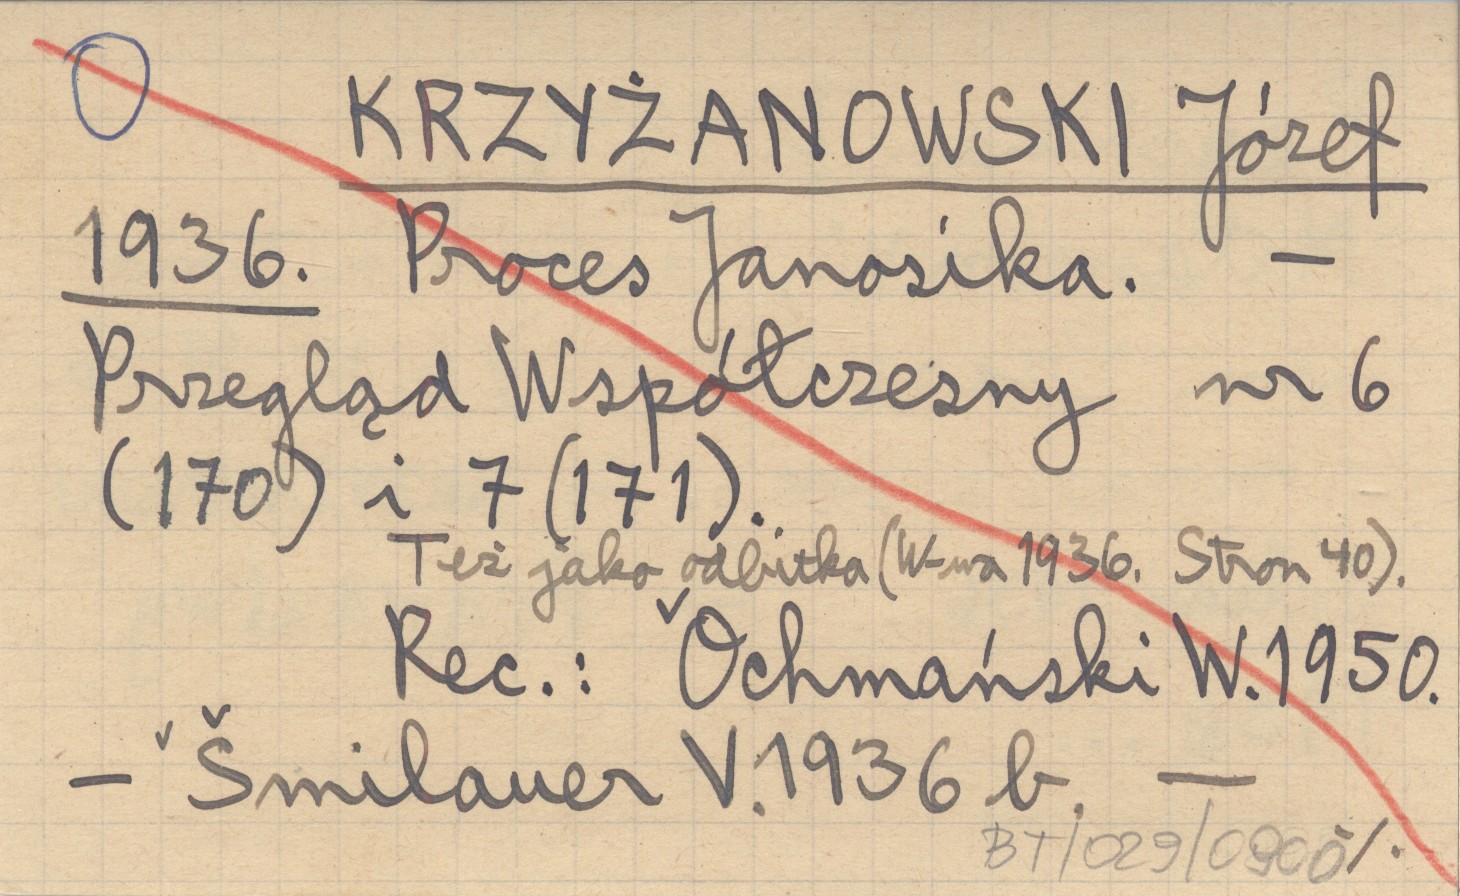 KRZYŻANOWSKI Józef
1936. Proces Janosika. —
Przegląd Współczesny nr 6
(170) i 7 (171).
Też jako odbitka (W-wa 1936. Stron 40).
Rec.: Ochmański W. 1950.
— Šmilauer V. 1936 b. —
BT/029/0900 /.